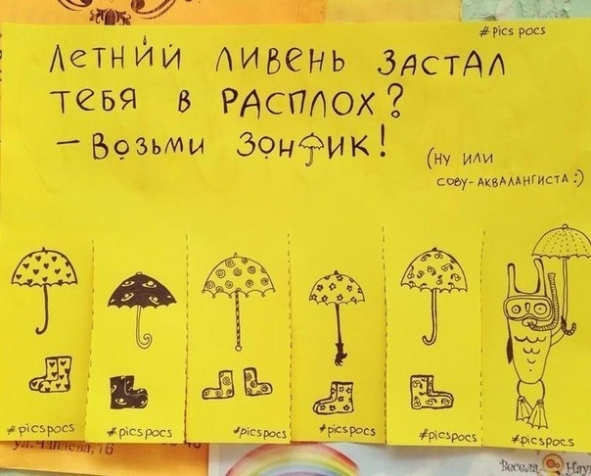 #pics pocs
ЛЕТНИЙ ЛИВЕНЬ ЗАСТАЛ
ТЕБЯ В РАСПЛОХ?
– ВОЗЬМИ ЗОНТИК!
(НУ ИЛИ
СОВУ-АКВАЛАНГИСТА:)
#picspocs #picspocs #picspocs #picspocs #picspocs #picspocs
ул. Чапаева, 16
Весела Нау